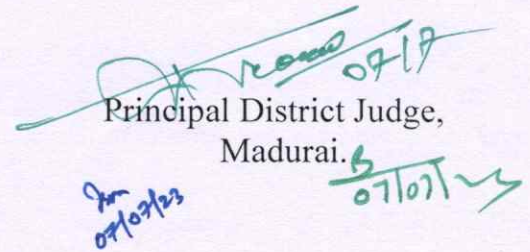 07/7
Principal District Judge,
Madurai.
07/07/23
07/07/23